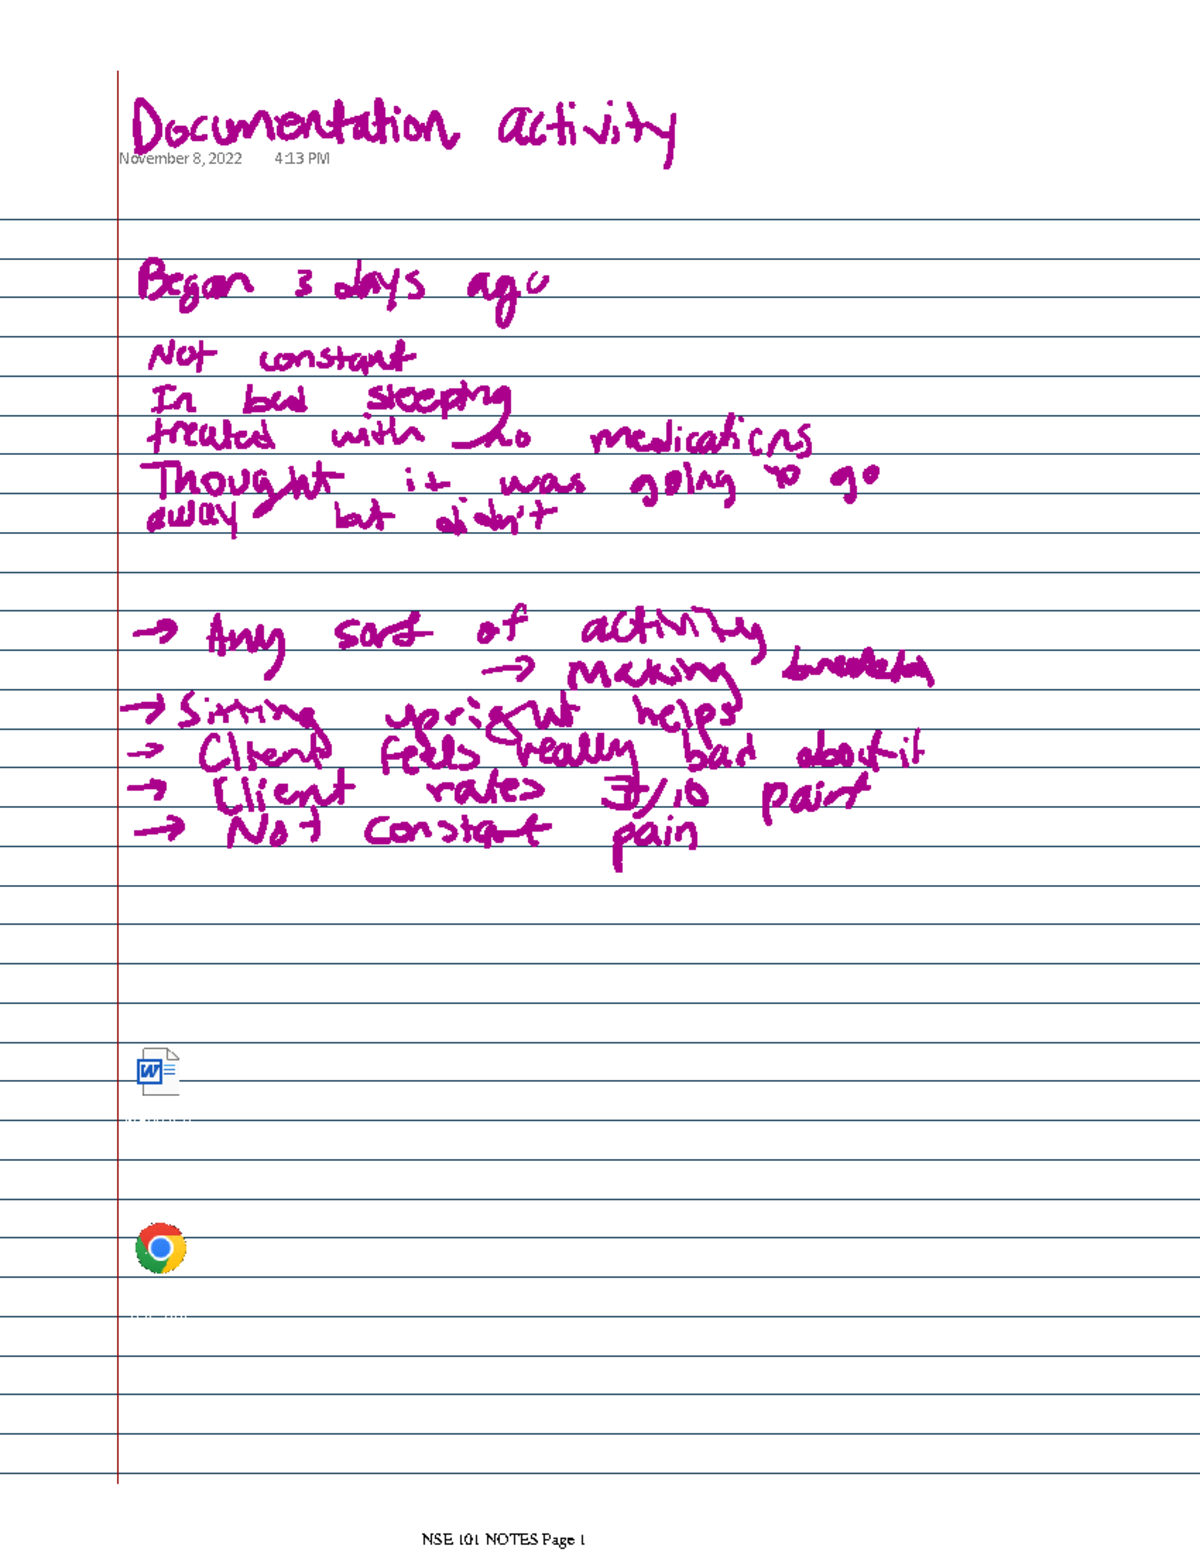 Documentation activity
November 8, 2022 4:13 PM
Began 3 days ago
Not constant
In bed sleeping
treated with no medications
Thought it was going to go
away but didn't
→ Any sort of activity
→ Making breakfast
→ Sitting upright helps
→ Client feels really bad about it
→ Client rates /10 pain
→ Not constant pain
NSE 101 NOTES Page 1